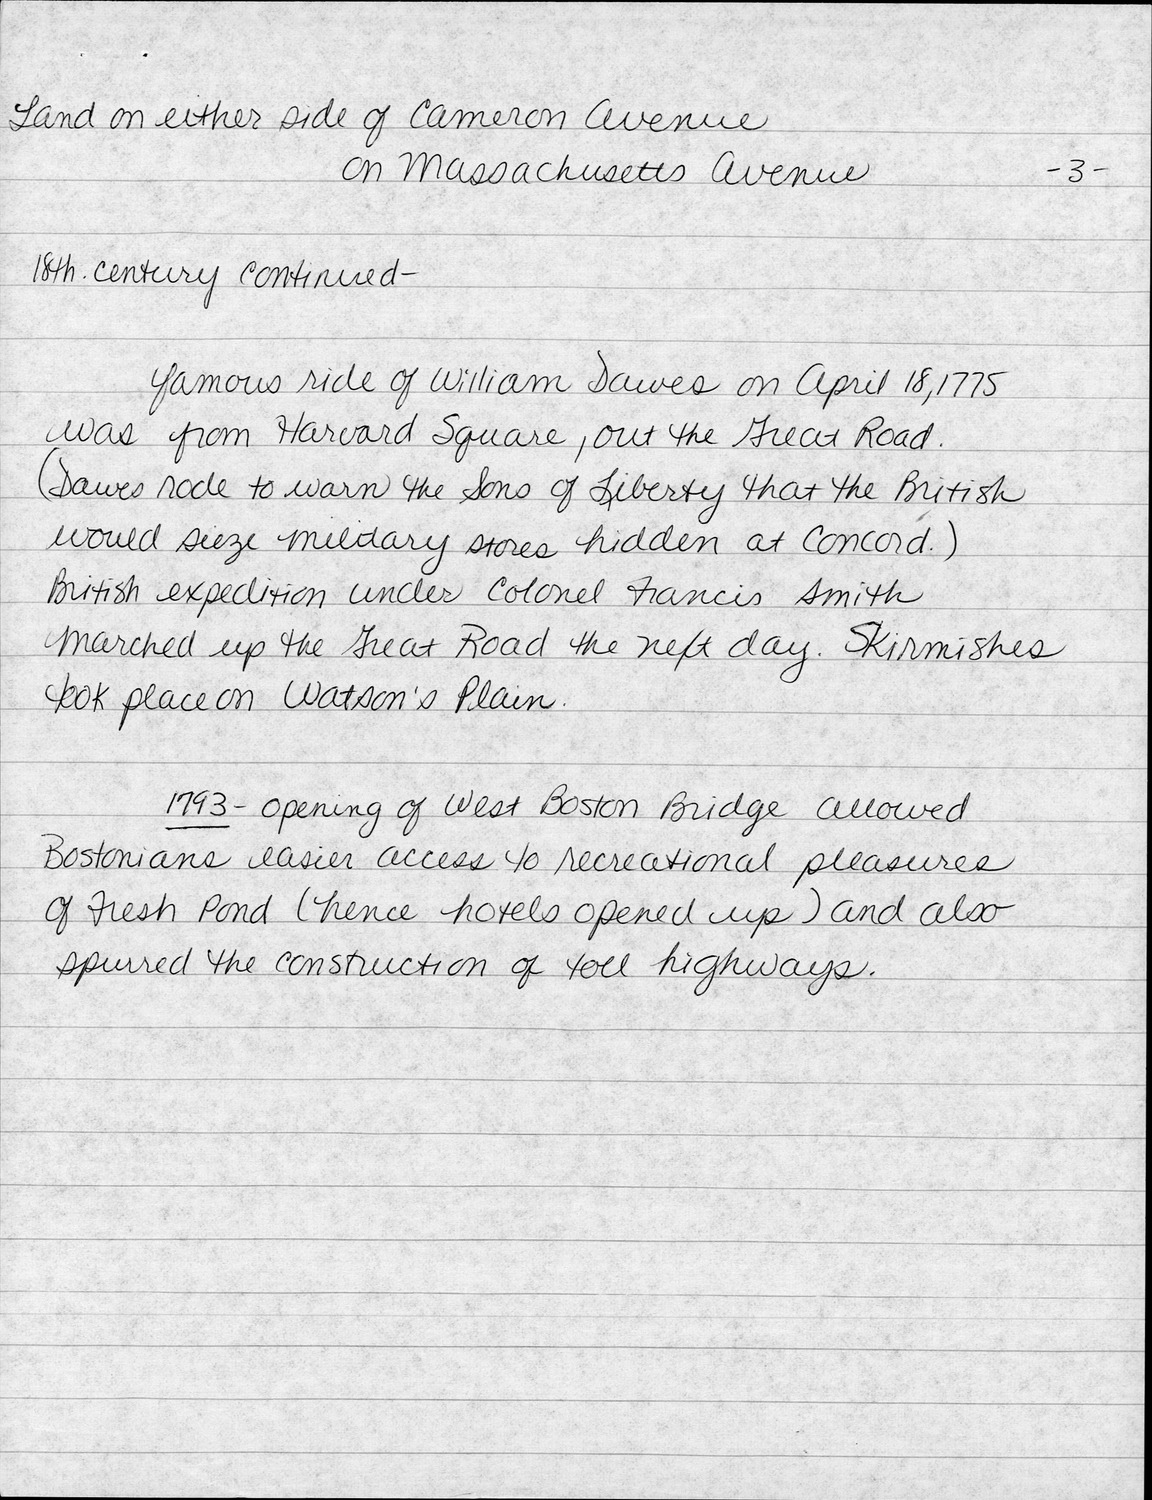 Land on either side of Cameron Avenue
on Massachusetts Avenue -3-
18th. century continued-
famous ride of William Dawes on April 18, 1775
was from Harvard Square, out the Great Road.
(Dawes rode to warn the Sons of Liberty that the British
would sieze military stores hidden at Concord.)
British expedition under Colonel Francis Smith
marched up the Great Road the next day. Skirmishes
took place on Watson's Plain.
1793- opening of West Boston Bridge allowed
Bostonians easier access to recreational pleasures
of Fresh Pond (hence hotels opened up) and also
spurred the construction of toll highways.